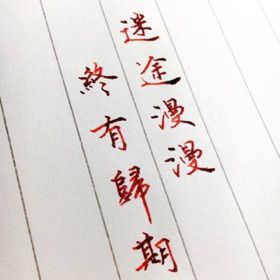 迷途漫漫
終有歸期